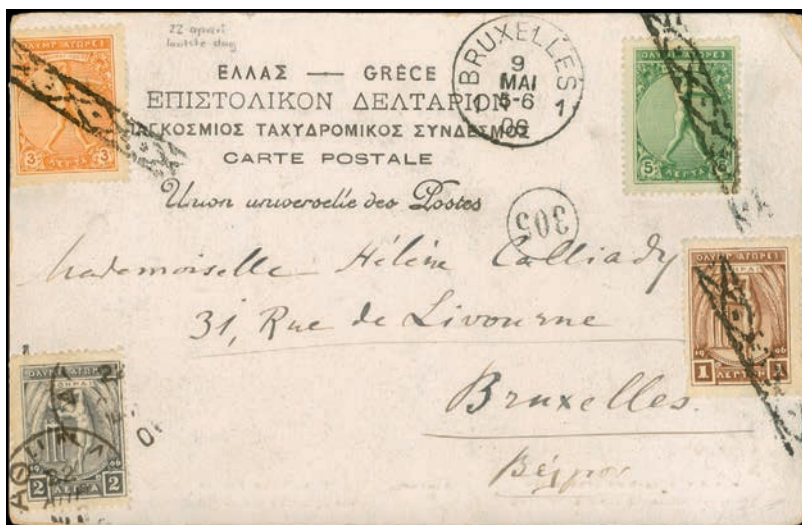 22 april
laatste dag
ΕΛΛΑΣ — GRÈCE
ΕΠΙΣΤΟΛΙΚΟΝ ΔΕΛΤΑΡΙΟΝ
ΠΑΓΚΟΣΜΙΟΣ ΤΑΧΥΔΡΟΜΙΚΟΣ ΣΥΝΔΕΣΜΟΣ
CARTE POSTALE
Union universelle des Postes
BRUXELLES
9
MAI
5-6
06
1 1
305
Mademoiselle Hélène Calliady
31, Rue de Livourne
Bruxelles.
ΟΛΥΜΠ. ΑΓΩΝΕΣ
3 3
ΛΕΠΤΑ
ΟΛΥΜΠ. ΑΓΩΝΕΣ
5
ΛΕΠΤΑ
ΟΛΥΜΠ. ΑΓΩΝΕΣ
1906
1 ΛΕΠΤΟΝ 1
ΟΛΥΜΠ. ΑΓΩΝ
2 ΛΕΠΤΑ 2